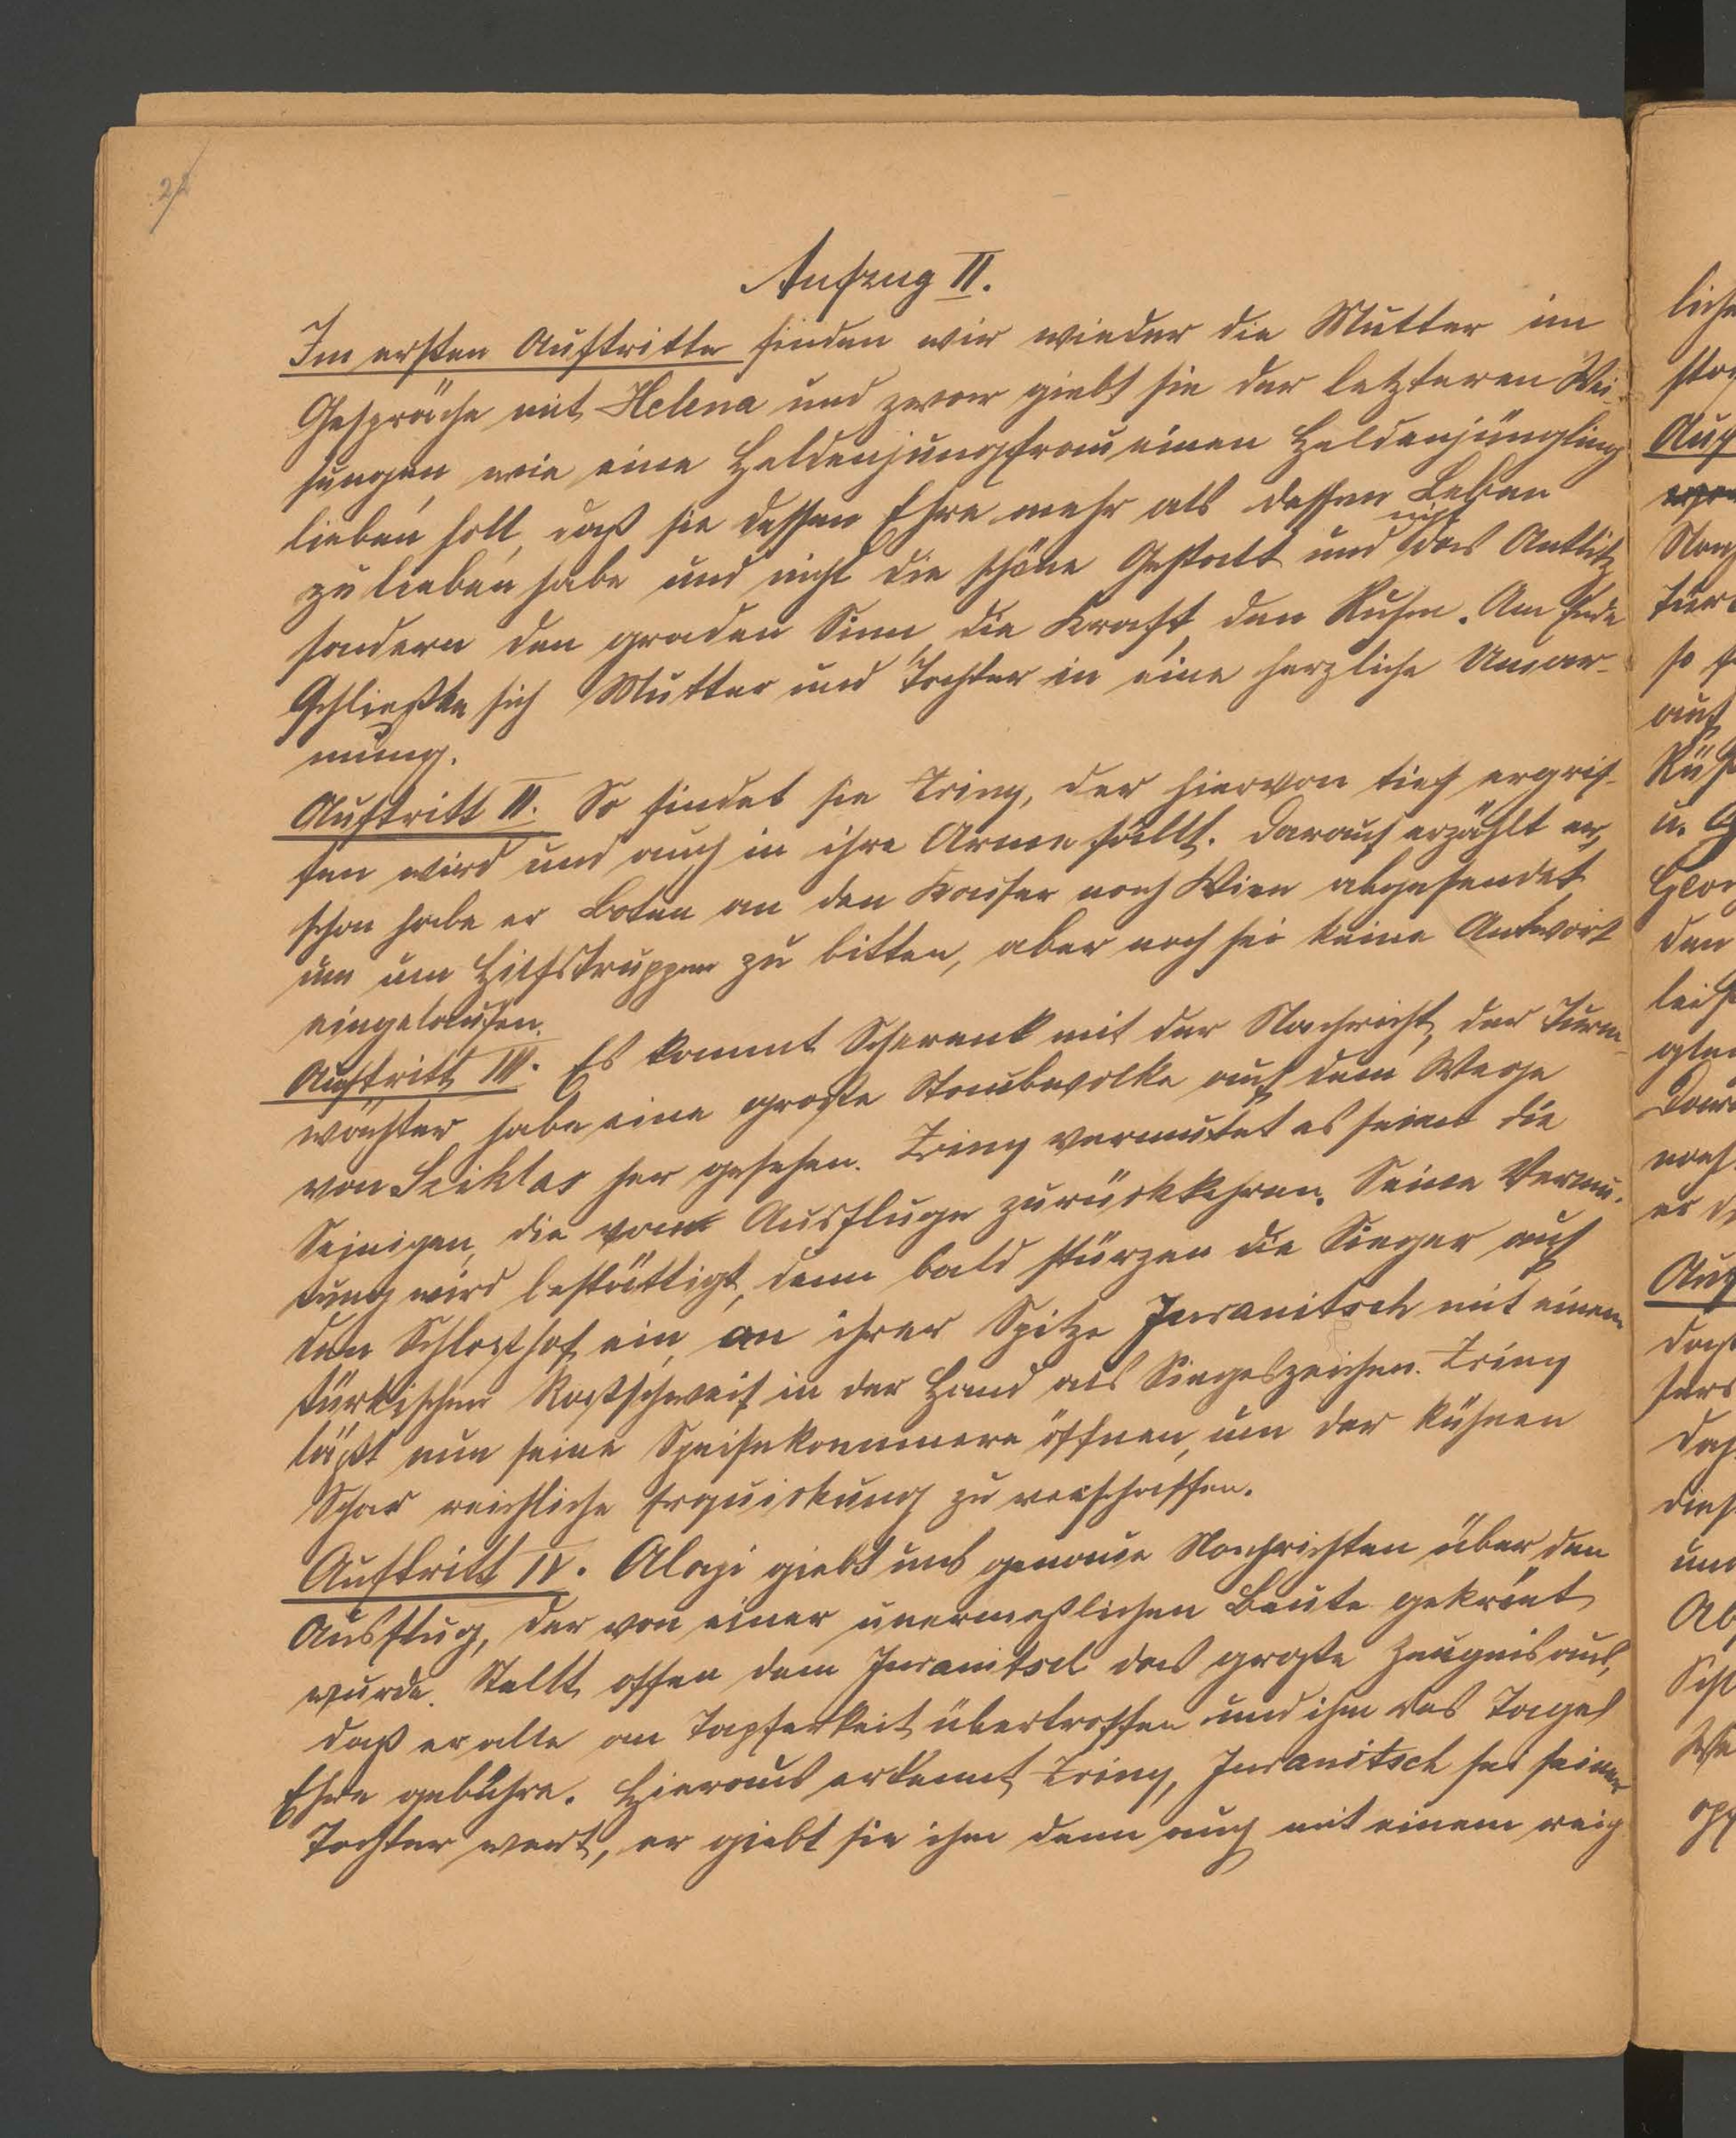 22
Aufzug II.
Im ersten Auftritte finden wir wieder die Mutter im
Gespräche mit Helena und zwar giebt sie der letzteren Wei-
sungen, wie eine Heldenjungfrau einen Heldenjüngling
lieben soll, daß sie dessen Ehre mehr als dessen Leben
zu lieben habe und nicht die schöne Gestalt und nicht das Antlitz
sondern den graden Sinn, die Kraft, den Ruhm. Am Ende
schließen sich Mutter und Tochter in eine herzliche Umar-
mung.
Auftritt II. So findet sie Zriny, der hiervon tief ergrif-
fen wird und auch in ihre Arme fällt. Darauf erzählt er,
schon habe er Boten an den Kaiser nach Wien abgesendet
um um Hilfstruppen zu bitten, aber noch sei keine Antwort
eingelaufen.
Auftritt III. Es kommt Scherenk mit der Nachricht, der Turm-
wächter habe eine große Staubwolke auf dem Wege
von Sziklas her gesehen. Zriny vermutet es seien die
Seinigen, die vom Ausfluge zurückkehren. Seine Vermu-
tung wird bestättigt, denn bald stürzen die Sieger auf
den Schloßhof ein, an ihrer Spitze Juranitsch mit einem
türkischen Roßschweif in der Hand als Siegeszeichen. Zriny
läßt nun seine Speisekammern öffnen, um der kühnen
Schar reichliche Erquickung zu verschaffen.
Auftritt IV. Alapi giebt uns genaue Nachrichten über den
Ausflug, der von einer unermeßlichen Beute gekrönt
wurde. Stellt offen dem Juranitsch das große Zeugnis aus,
daß er alle an Tapferkeit übertroffen und ihm des Tages
Ehre gebühre. Hieraus erkennt Zriny, Juranitsch sei seiner
Tochter wert, er giebt sie ihm denn auch mit einem reich